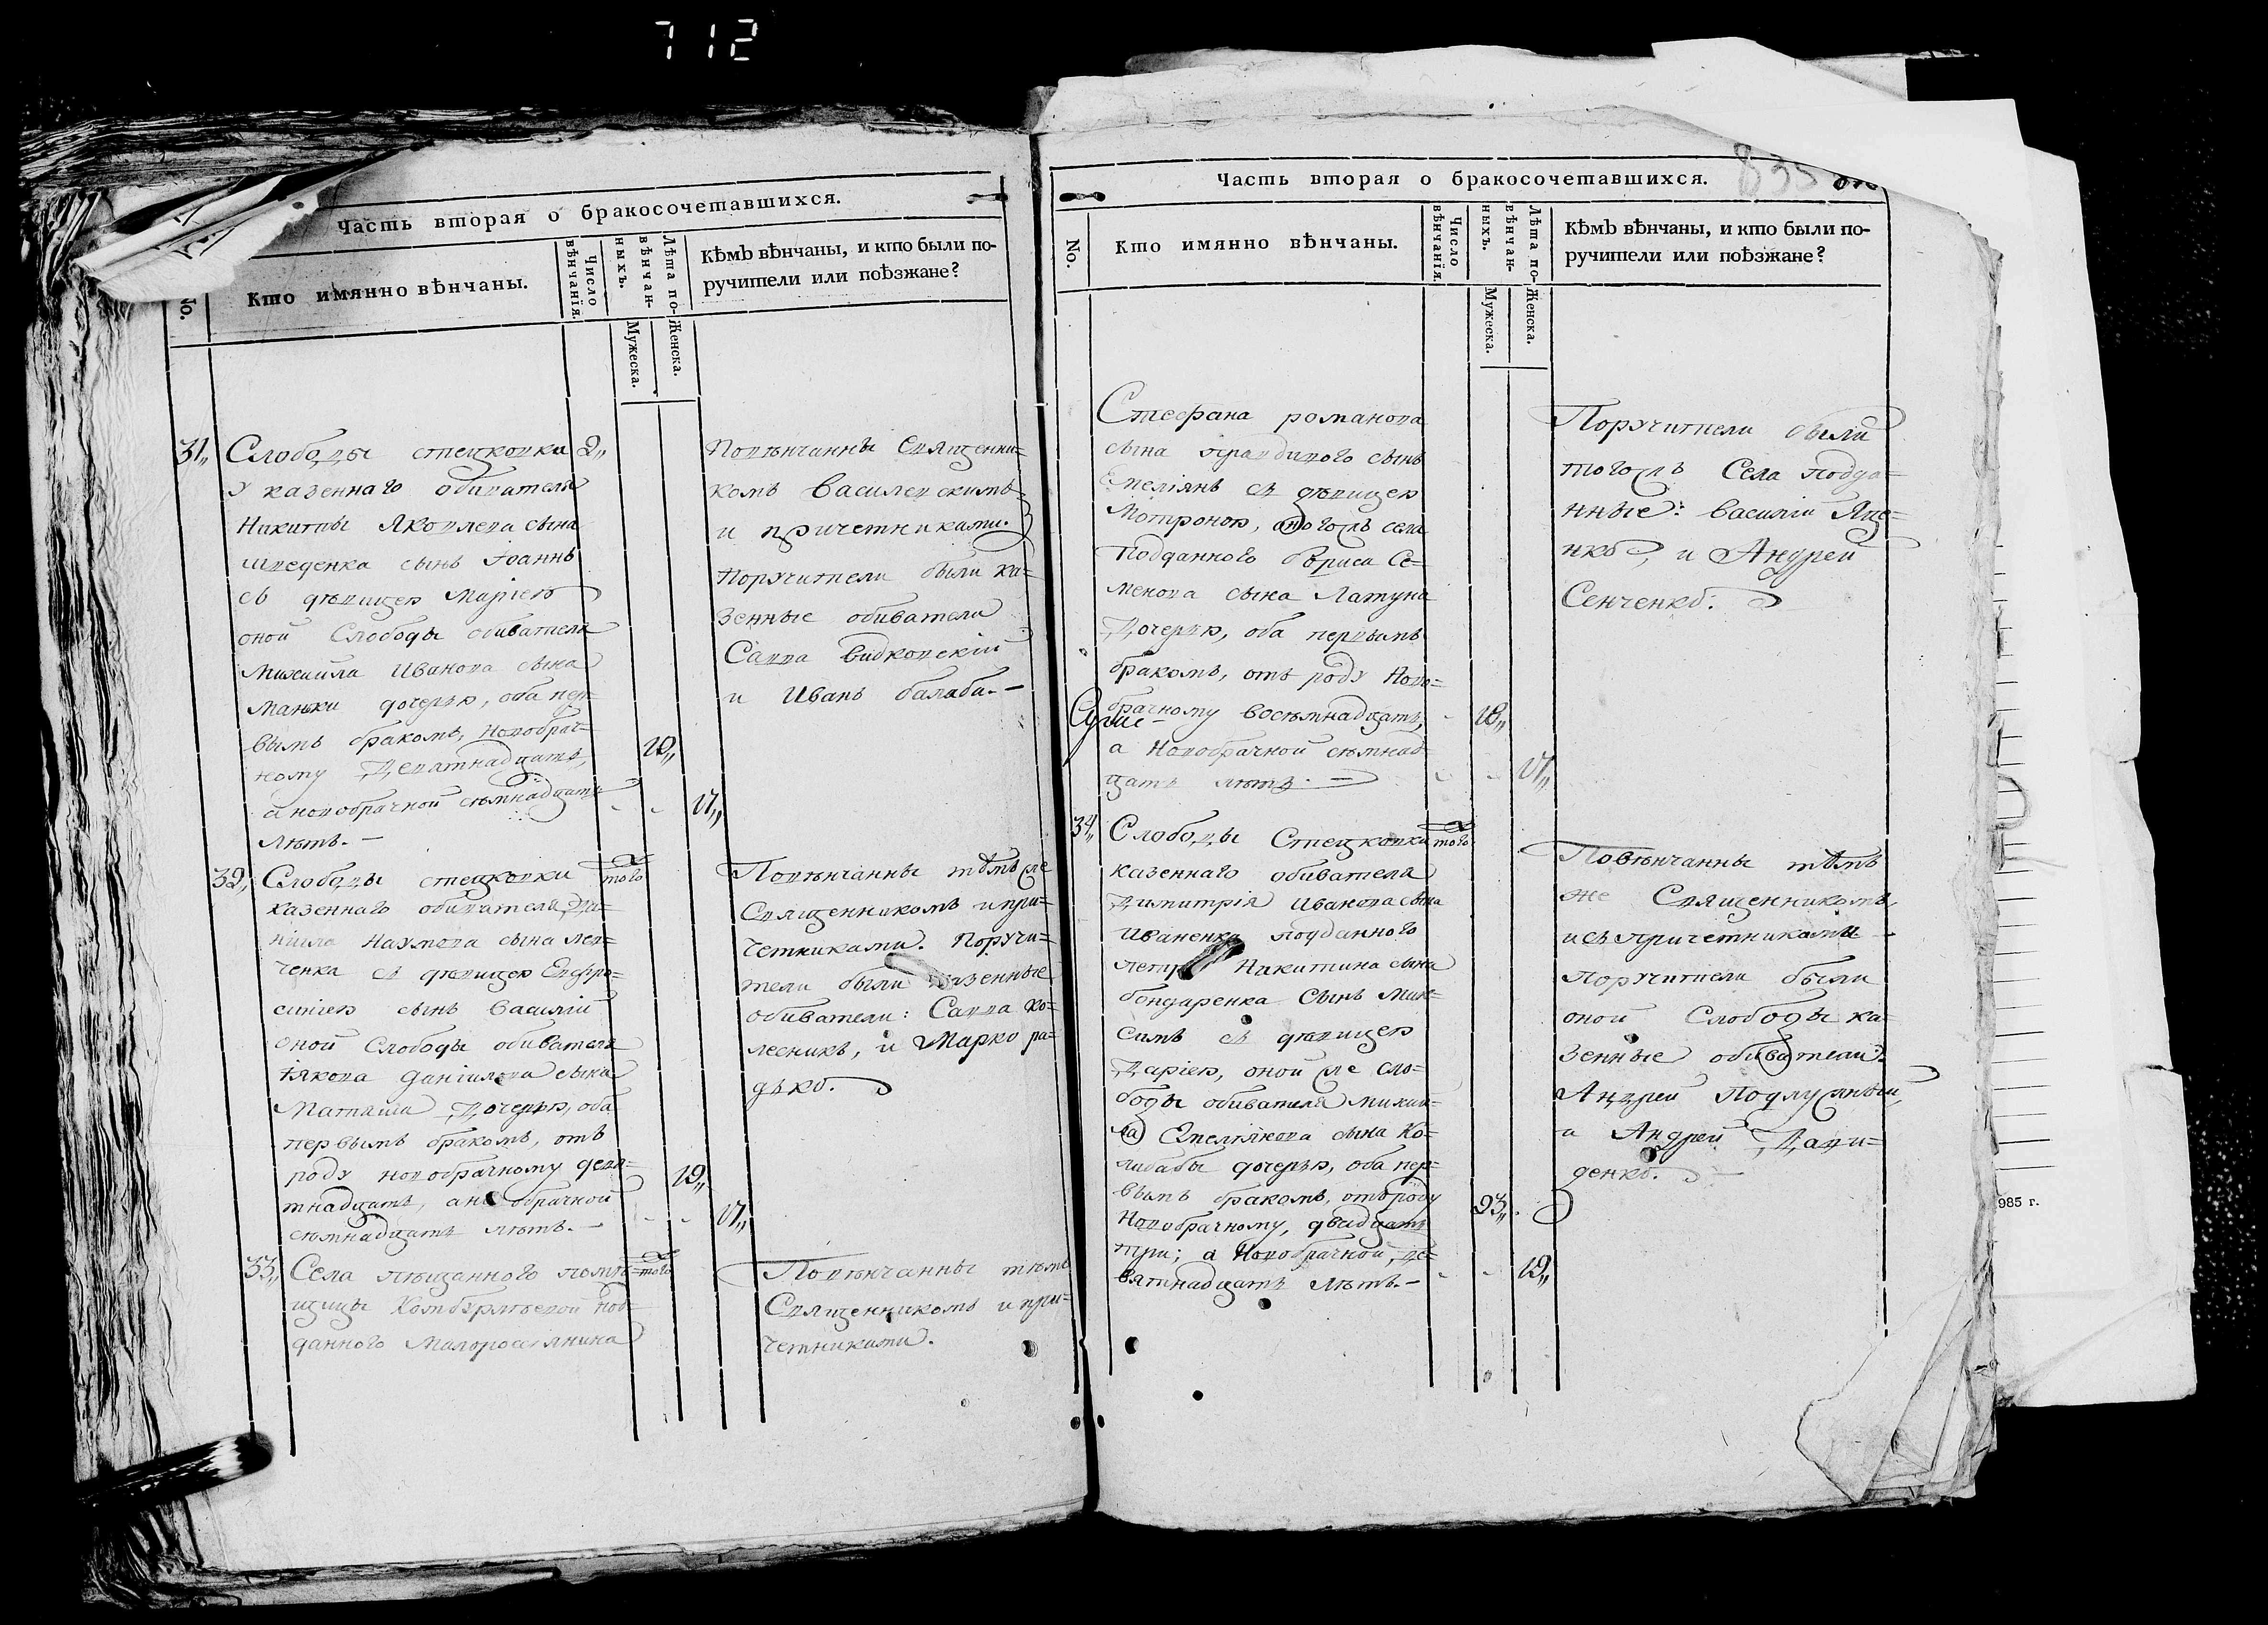 712
Часть вторая о бракосочетавшихся.
Кто имянно вѣнчаны.
Число вѣнчанія.
Лѣта повѣнчанныхъ.
Мужеска.
Женска.
Кѣмъ вѣнчаны, и кто были по-
ручители или поѣзжане?
31,, Слободы стецковки 2,,
казеннаго обивателя
Никиты Яковлева сына
шведенка сынъ Іоаннъ
съ дѣвицею Маріею
оной Слободы обивателя
Михайла Иванова сына
Маньки дочерью, оба пер-
вымъ бракомъ, новобрач=
ному Девятнадцать, 19,,
а новобрачной семнадцать 17,,
лѣтъ.-
Повѣнчанны Священни=
комъ Василевскимъ
и причетниками.
Поручители были ка=
зенные обиватели
Савва Видковскій
и Иванъ балаба.-
32,, Слободы стецковки того
казеннаго обивателя Да=
ніила Наумова сына лев=
ченка съ дѣвицею Евфро=
синіею сынъ Василій
оной Слободы обивателя
Іякова Даніилова сына
Матяша Дочерью, оба
первымъ бракомъ, отъ
роду новобрачному девя= 19,,
тнадцать, а обрачной
семнадцать лѣтъ.- 17,,
Повѣнчанны тѣмъ же
Священникомъ и при=
четниками. Поручи=
тели были казенные
обиватели: Савва ко=
лесникъ, и Марко ра=
дько.
33,, Села пѣщанного помѣ= того
щицы Комбурлѣевой под=
данного Малороссіянина
Повѣнчанны тѣмъ
Священникомъ и при=
четниками.
Часть вторая о бракосочетавшихся. 835
No. Кто имянно вѣнчаны.
Число вѣнчанія.
Лѣта повѣнчанныхъ.
Мужеска.
Женска.
Кѣмъ вѣнчаны, и кто были по-
ручители или поѣзжане?
Стефана романова
сына сынъ
Емеліянъ съ дѣвицею
Мотроною, тогожъ села
Подданного бориса Се=
менова сына Латуна
Дочерью, оба первымъ
бракомъ, отъ роду Ново=
брачному восемнадцать, 18,,
а Новобрачной семнад=
цать лѣтъ.- 17,,
Поручители были
тогожъ Села подда=
нные: василій Яце=
нко, и Андрей
Сенченко.
34,, Слободы Стецковки того
казеннаго обивателя
Димитрія Иванова сына
Иваненка подданного
петра Никитина сына
бондаренка Сынъ Мак=
симъ съ дѣвицею
Даріею, оной же сло=
боды обивателя михаи=
ла Емеліянова сына Ко=
либабы дочерью, оба пер=
вымъ бракомъ, отъ роду
Новобрачному, двадцать 23,,
три; а Новобрачной, де=
вятнадцать лѣтъ.- 19,,
Повѣнчанны тѣмъ
же Священникомъ,
и съ причетниками
поручители были
оной Слободы ка=
зенные обиватели:
Андрей Подлужный,
и Андрей Дави=
денко.
985 г.